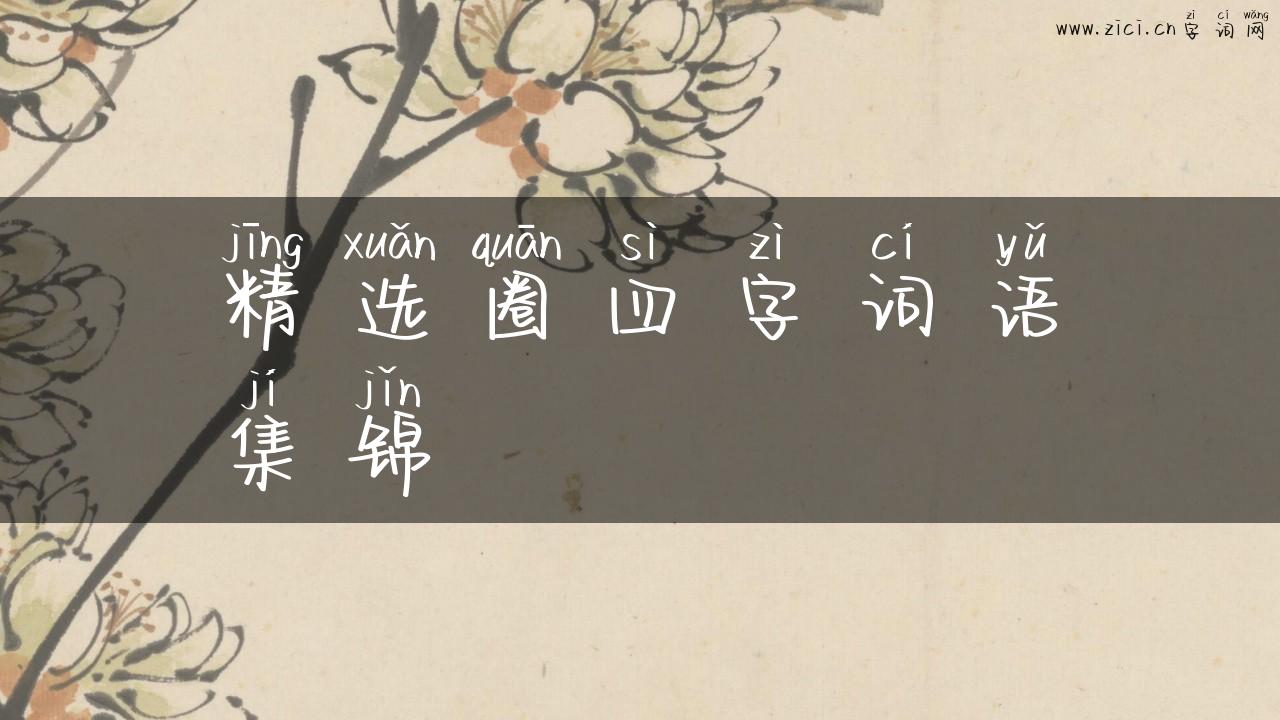 zì cí wǎng
www.zici.cn 字词网
jīng xuǎn quān sì zì cí yǔ
精选圈四字词语
jí jǐn
集锦